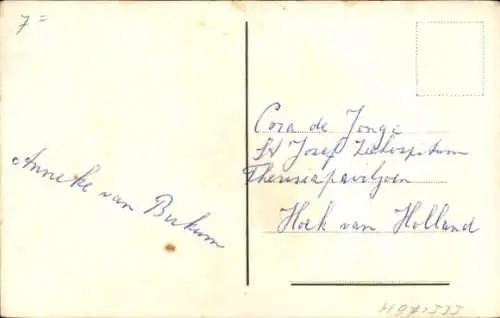 7=
Anneke van Berkum
Cora de Jonge
St Josef Zeehospitum
Theresiapaviljoen
Hoek van Holland